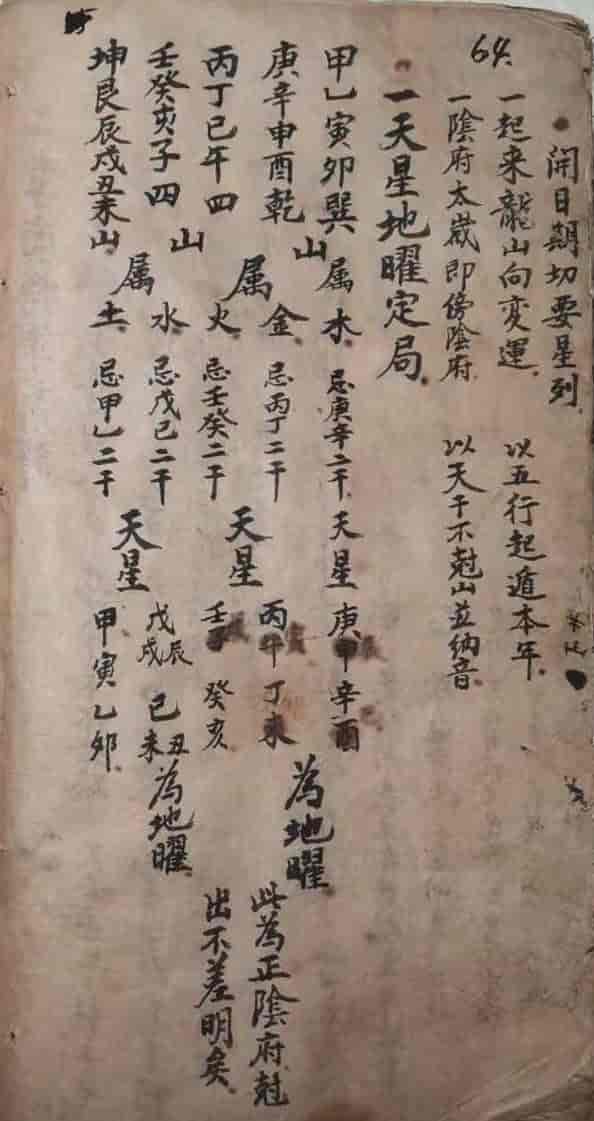 64.
開日期切要星列
一起来龍山向変運 以五行起遁本年
一陰府太歲即傍陰府 以天干不尅山並納音
一天星地曜定局
甲乙寅卯巽山属木 忌庚辛二干 天星 庚申辛酉 為地曜
庚辛申酉乾山属金 忌丙丁二干 天星 丙午丁未 為地曜 此為正陰府尅
丙丁巳午四山属火 忌壬癸二干 天星 壬子癸亥 為地曜 出不差明矣
壬癸亥子四山属水 忌戊己二干 天星 戊辰戌己丑未 為地曜
坤艮辰戌丑未山属土 忌甲乙二干 天星 甲寅乙卯